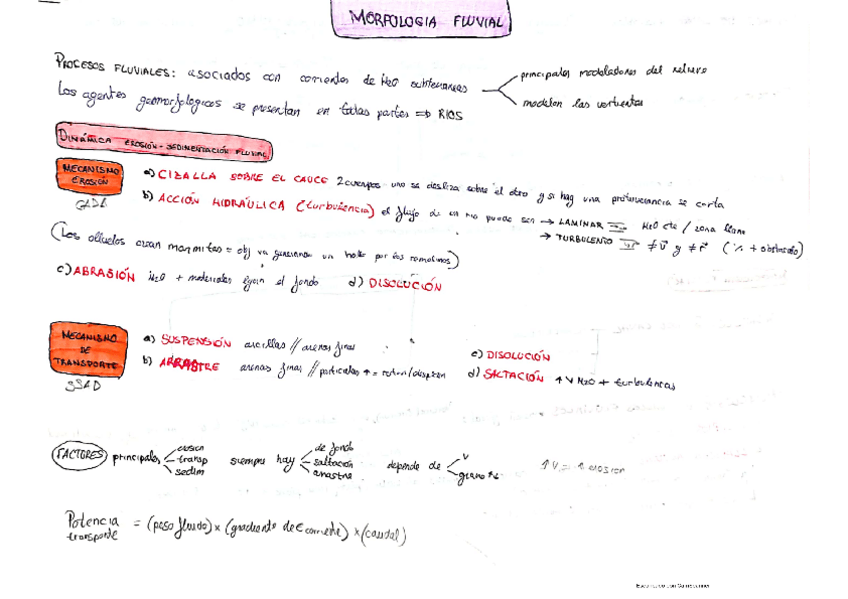 MORFOLOGIA FLUVIAL
PROCESOS FLUVIALES: asociados con corrientes de H2O subterraneas
principales modeladores del relieve
modelan las vertientes
Los agentes geomorfologicos se presentan en todas partes => RIOS
DINÁMICA EROSIÓN-SEDIMENTACIÓN FLUVIAL
MECANISMO EROSIÓN
a) CIZALLA SOBRE EL CAUCE 2 cuerpos uno se desliza sobre el otro y si hay una protuberancia se corta
CADA
b) ACCIÓN HIDRAÚLICA (turbulencia) el flujo de un rio puede ser → LAMINAR H2O cte / zona llana
→ TURBULENTO ≠ v y ≠ r ( + obstaculo)
(Los olluelos crean marmitas = obj va generando un hollo por los remolinos)
c) ABRASIÓN H2O + materiales el fondo d) DISOLUCIÓN
MECANISMO DE TRANSPORTE
a) SUSPENSIÓN arcillas // arenas finas
c) DISOLUCIÓN
b) ARRASTRE arenas finas // particulas ↑ =
d) SALTACIÓN ↑ V H2O + turbulencias
SSAD
FACTORES principales
erosion
transp
sedim
siempre hay
de fondo
saltación
arrastre
depende de
v
grano
↑ V = ↑ erosion
Potencia transporte = (peso fluido) x (gradiente de E corriente) x (caudal)